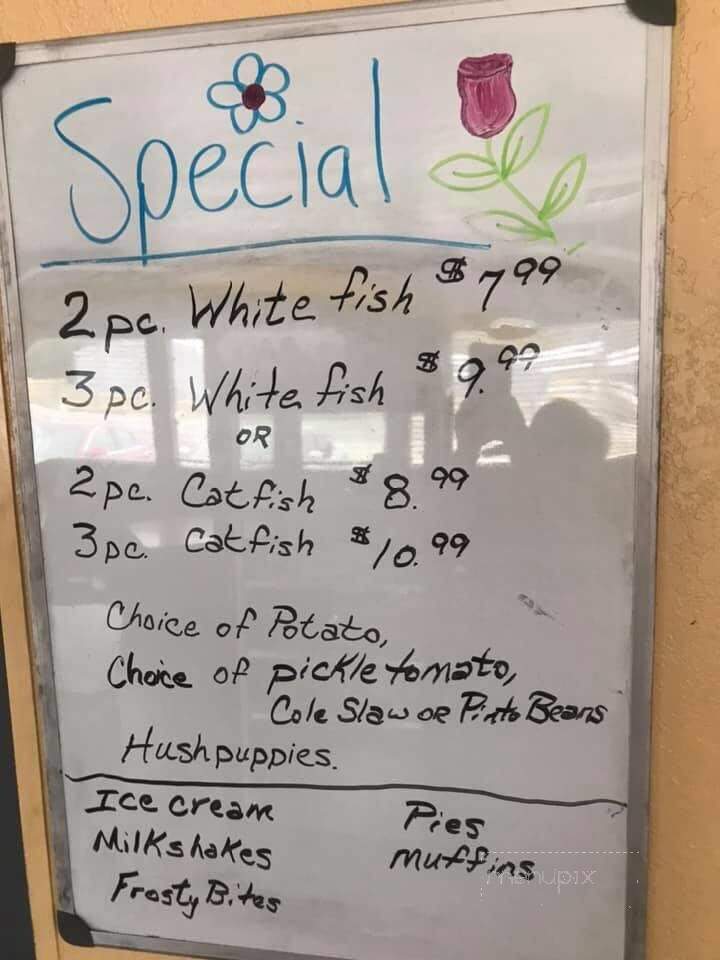 Special
2 pc. White fish $ 7 99
3 pc. White fish $ 9. 99
OR
2 pc. Catfish $ 8. 99
3 pc. Catfish $ 10. 99
Choice of Potato,
Choice of pickle tomato,
Cole Slaw OR Pinto Beans
Hushpuppies.
Ice cream
Pies
Milkshakes
muffins
Frosty Bites
menupix